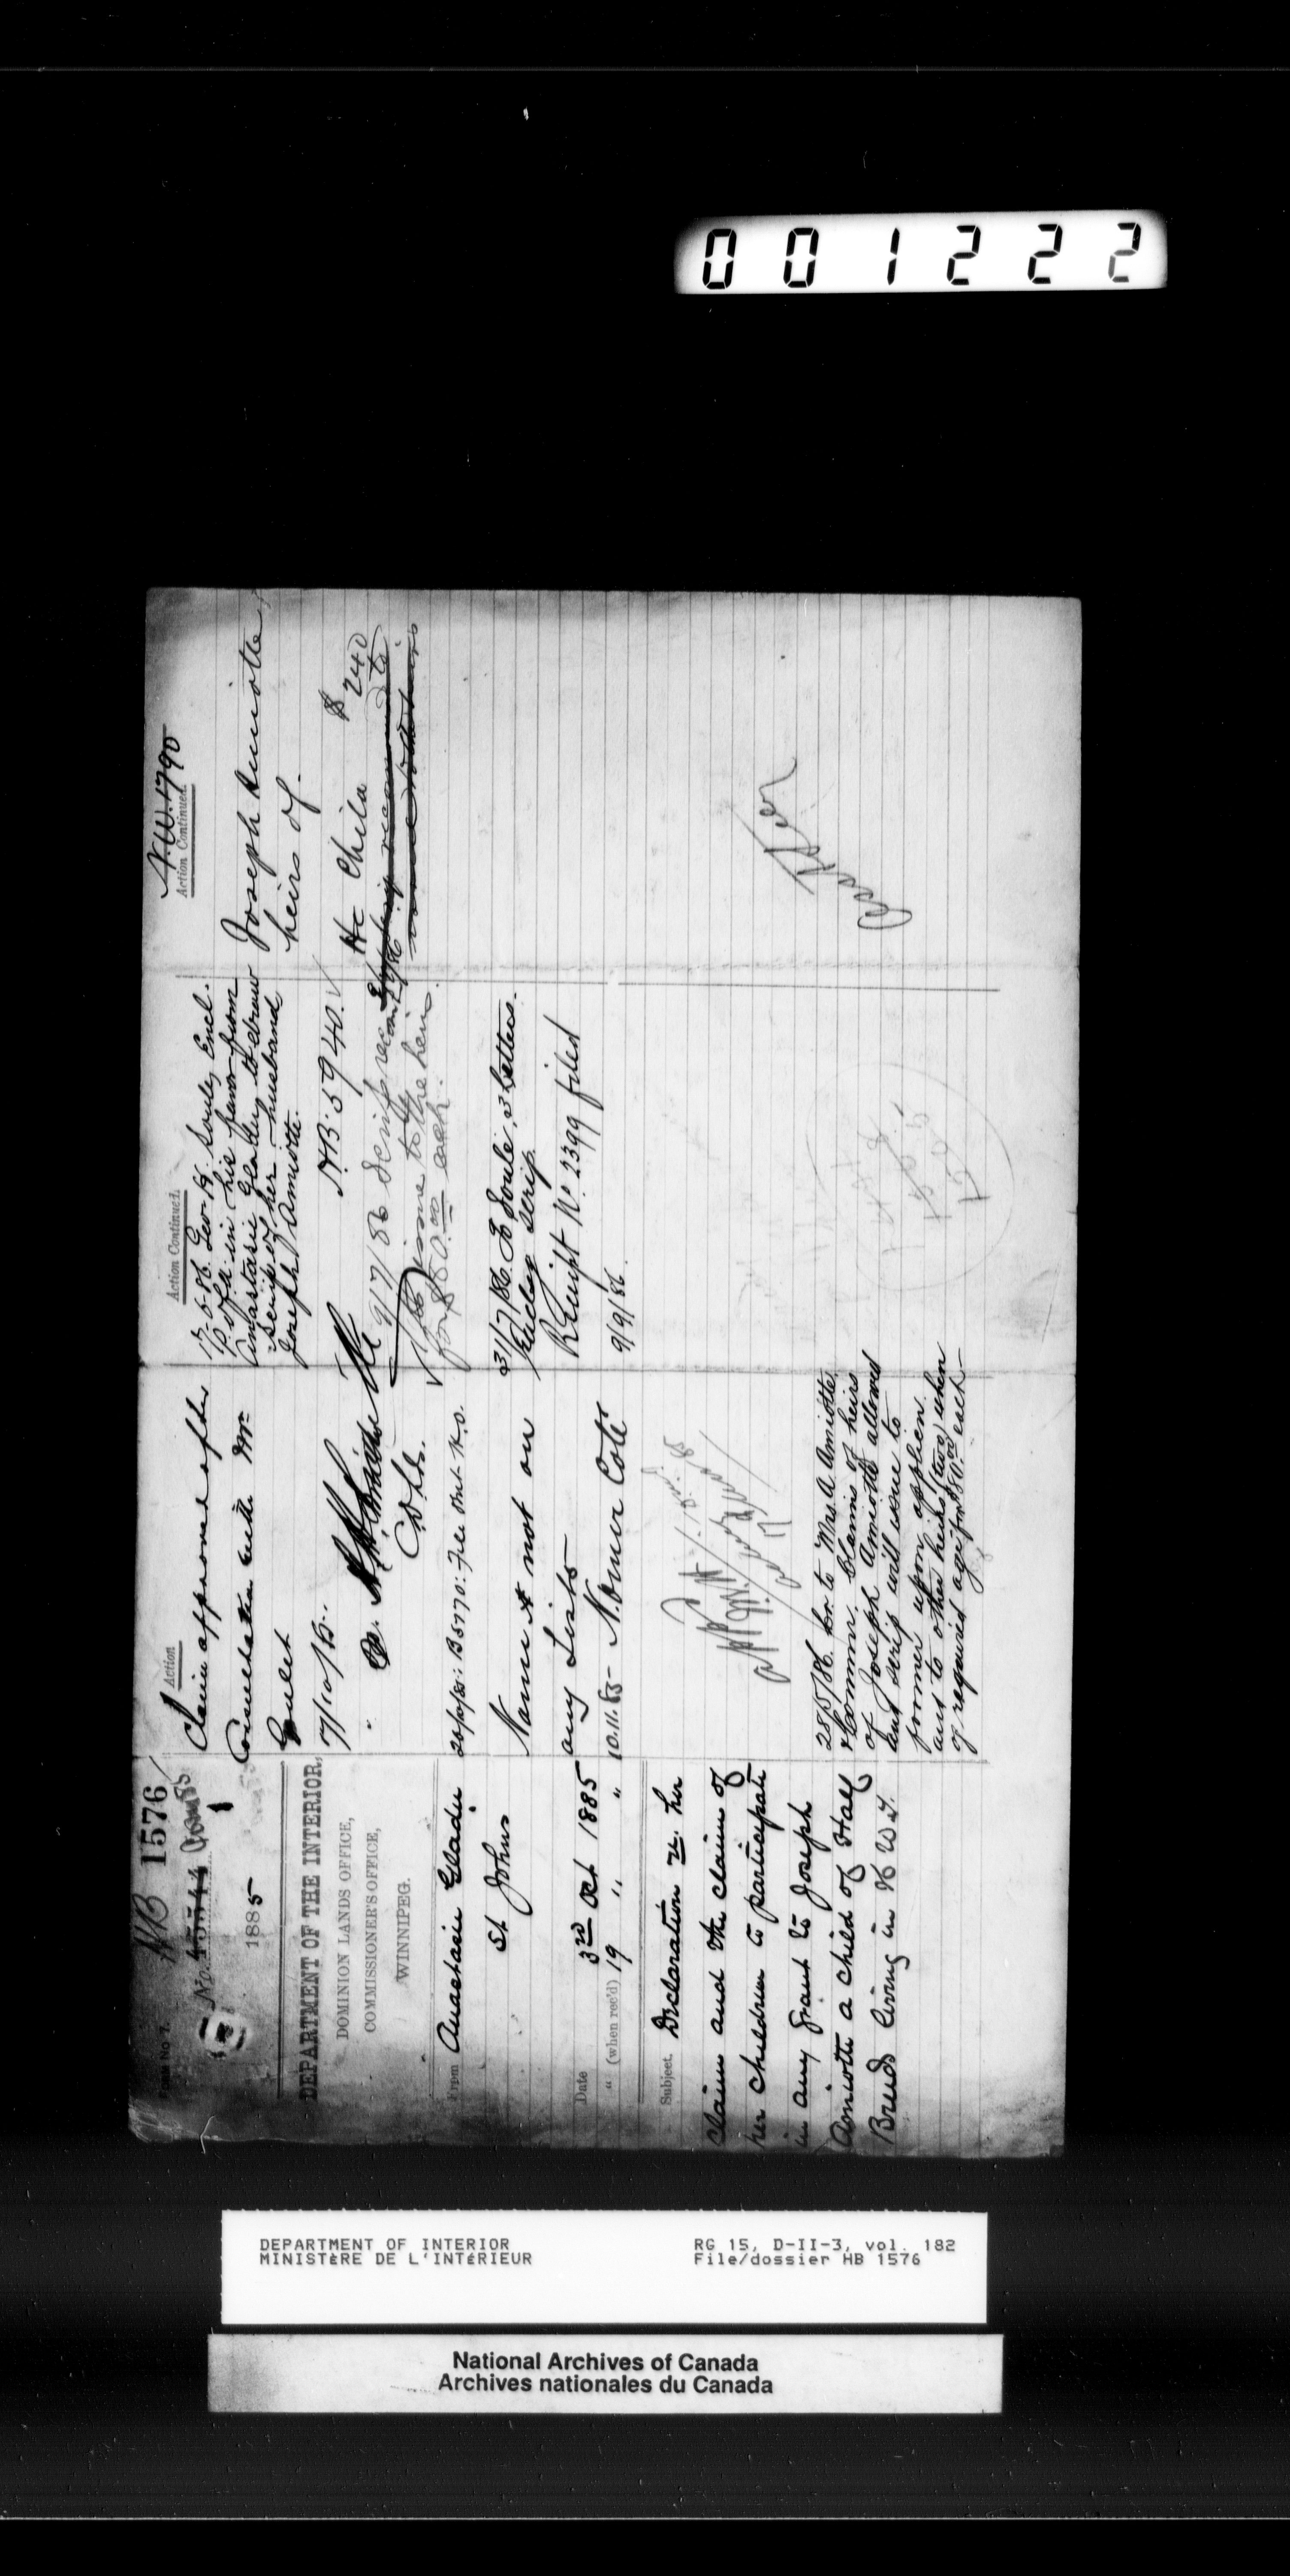 001222
Form No 1.
HB 1576
No. 45544
1885
DEPARTMENT OF THE INTERIOR,
DOMINION LANDS OFFICE,
COMMISSIONER'S OFFICE,
WINNIPEG.
From Anastasie Gladu
St Johns
Date 3rd Oct 1885
" (when rec'd) 19 " "
Subject. Declaration re. her
claim and the claim of
her children to participate
in any grant to Joseph
Amiotte a child of Half
Breeds living in N W T.
Action
Claim approved after
Consultation with Mr
Goulet
7/10/85.
20/10/85: B5770: File Out H.O.
Name + not on
any Lists
10.11.85 N. Omer Coté
28/5/86. Lr. to Mrs A Amiotte
& Commr. Claims of heirs
of Joseph Amiotte allowed
and scrip will issue to
former upon applicn.
and to other heirs (two) when
of required age for $80.00 each
Action Continued.
17-5-86. Geo. H. Soule, Encl.
P. of A. in his favor from
Anastasie Gladu, to draw
scrip of her husband
Joseph Amiotte.
HB. 5940. √
9/7/86 Scrip
issue to the heirs
for $80.00 each.
31/7/86. To Soule, 3 Letters.
Enclog scrip.
Receipt No. 2399 filed
9/9/86.
Action Continued.
N.W. 1790
Joseph Amiotte
heirs of.
Hc Child $240
DEPARTMENT OF INTERIOR
MINISTÈRE DE L'INTÉRIEUR
RG 15, D-II-3, vol. 182
File/dossier HB 1576
National Archives of Canada
Archives nationales du Canada